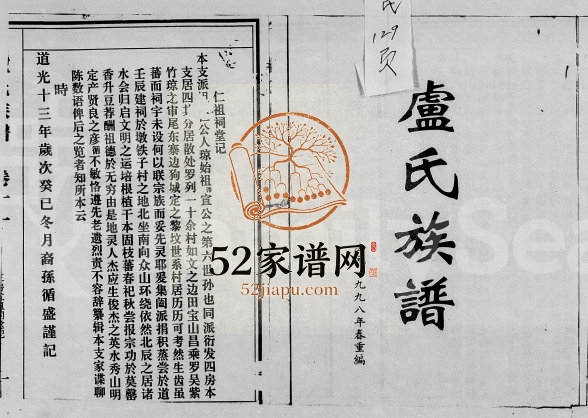 129页
盧氏族譜
一九九八年春重編
仁祖祠堂记
本支派祖
公人琼始祖
宜公之第六世孙也同派衍发四房本
支居四
分居散处罗列一十余村如文之边田宝山昌乘罗吴紫
竹琼之审尾东寨边狗城定之黎坟世系村居历历可考然生齿虽
蕃而祠宇未设何以联宗族而妥先灵耶爰集阖派捐积蒸尝於道
壬辰建祠於墩铁子村之地北坐南向众山环绕依然北辰之居诸
水会归启文明之运培根植干本固枝蕃春祀秋尝报宗功於莫罄
香升豆荐酬祖德於无穷由是地灵人杰应生俊杰之英水秀山明
定产贤良之彦循不敏恪遵先老遗烈责不容辞纂辑本支家谍聊
陈数语俾后之览者知所本云
時
道光十三年歲次癸巳冬月裔孫循盛謹記
52家谱网
52jiapu.com